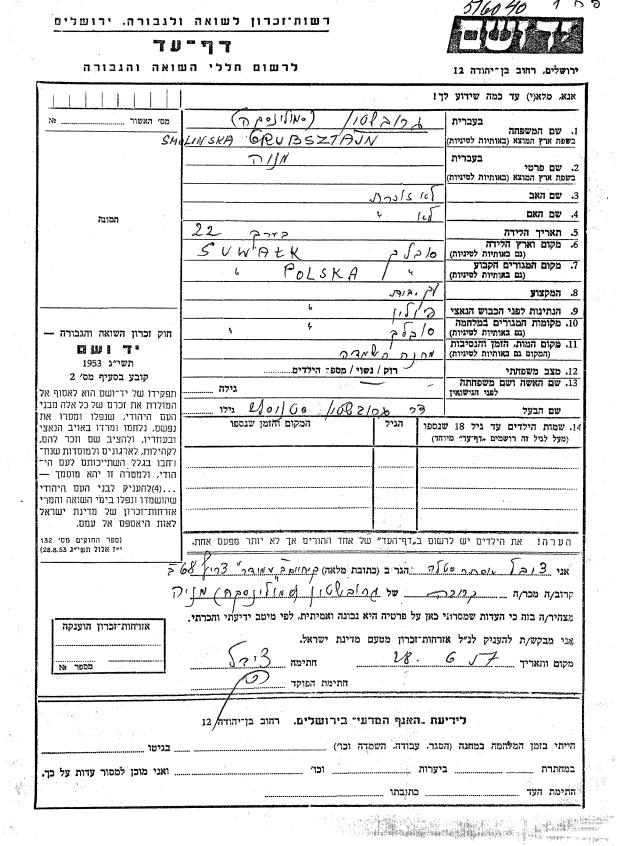 516040
רשות־זכרון לשואה ולגבורה, ירושלים
דף־עד
לרשום חללי השואה והגבורה
יד ושם
ירושלים, רחוב בן־יהודה 12
אנא, מלא(י) עד כמה שידוע לך!
מס' האשור № 
תמונה
1. שם המשפחה בעברית גרובשטין (סמולינסקה)
בשפת ארץ המוצא (באותיות לטיניות) SMOLINSKA GRUBSZTAJN
2. שם פרטי בעברית מניה
בשפת ארץ המוצא (באותיות לטיניות)
3. שם האב לא זוכרת
4. שם האם לא "
5. תאריך הלידה בערך 22
6. מקום וארץ הלידה (גם באותיות לטיניות) סובלק SUWAŁK
7. מקום המגורים הקבוע (גם באותיות לטיניות) " POLSKA "
8. המקצוע עק. בית
9. הנתינות לפני הכבוש הנאצי פולין "
10. מקומות המגורים במלחמה (גם באותיות לטיניות) סובלק " "
11. מקום המות, הזמן והנסיבות (המקום גם באותיות לטיניות) מחנה השמדה
12. מצב משפחתי רוק / נשוי / מספר הילדים
13. שם האשה ושם משפחתה לפני הנישואין גילה
שם הבעל דר גרובשטין גילו
14. שמות הילדים עד גיל 18 שנספו (מעל לגיל זה רושמים "דף־עד" מיוחד)
הגיל
המקום והזמן שנספו
הערה! את הילדים יש לרשום ב"דף־העד" של אחד ההורים אך לא יותר מפעם אחת.
חוק זכרון השואה והגבורה —
יד ושם
תשי"ג 1953
קובע בסעיף מס' 2
תפקידו של יד־ושם הוא לאסוף אל
המולדת את זכרם של כל אלה מבני
העם היהודי, שנפלו ומסרו את
נפשם, נלחמו ומרדו באויב הנאצי
ובעוזריו, ולהציב שם וזכר להם,
לקהילות, לארגונים ולמוסדות שנח־
רבו בגלל השתייכותם לעם הי־
הודי, ולמטרה זו יהא מוסמך —
...(4)להעניק לבני העם היהודי
שהושמדו ונפלו בימי השואה והמרי
אזרחות־זכרון של מדינת ישראל
לאות היאספם אל עמם.
(ספר החוקים מס' 132
י"ז אלול תשי"ג 28.8.53)
אני ציבל אסתר סטלה הגר ב (כתובת מלאה)
קרוב/ה מכר/ה קרובה של גרובשטין (סמולינסקה) מניה
מצהיר/ה בזה כי העדות שמסרתי כאן על פרטיה היא נכונה ואמיתית, לפי מיטב ידיעתי והכרתי.
אני מבקש/ת להעניק לנ"ל אזרחות־זכרון מטעם מדינת ישראל.
מקום ותאריך 28. 6 57 חתימה ציבל
חתימת הפוקד
אזרחות־זכרון הוענקה
מספר №
לידיעת האגף המדעי בירושלים, רחוב בן־יהודה 12
הייתי בזמן המלחמה במחנה (הסגר, עבודה, השמדה וכו') בגיטו
במחתרת ביערות וכו' ואני מוכן למסור עדות על כך.
חתימת העד כתובתו